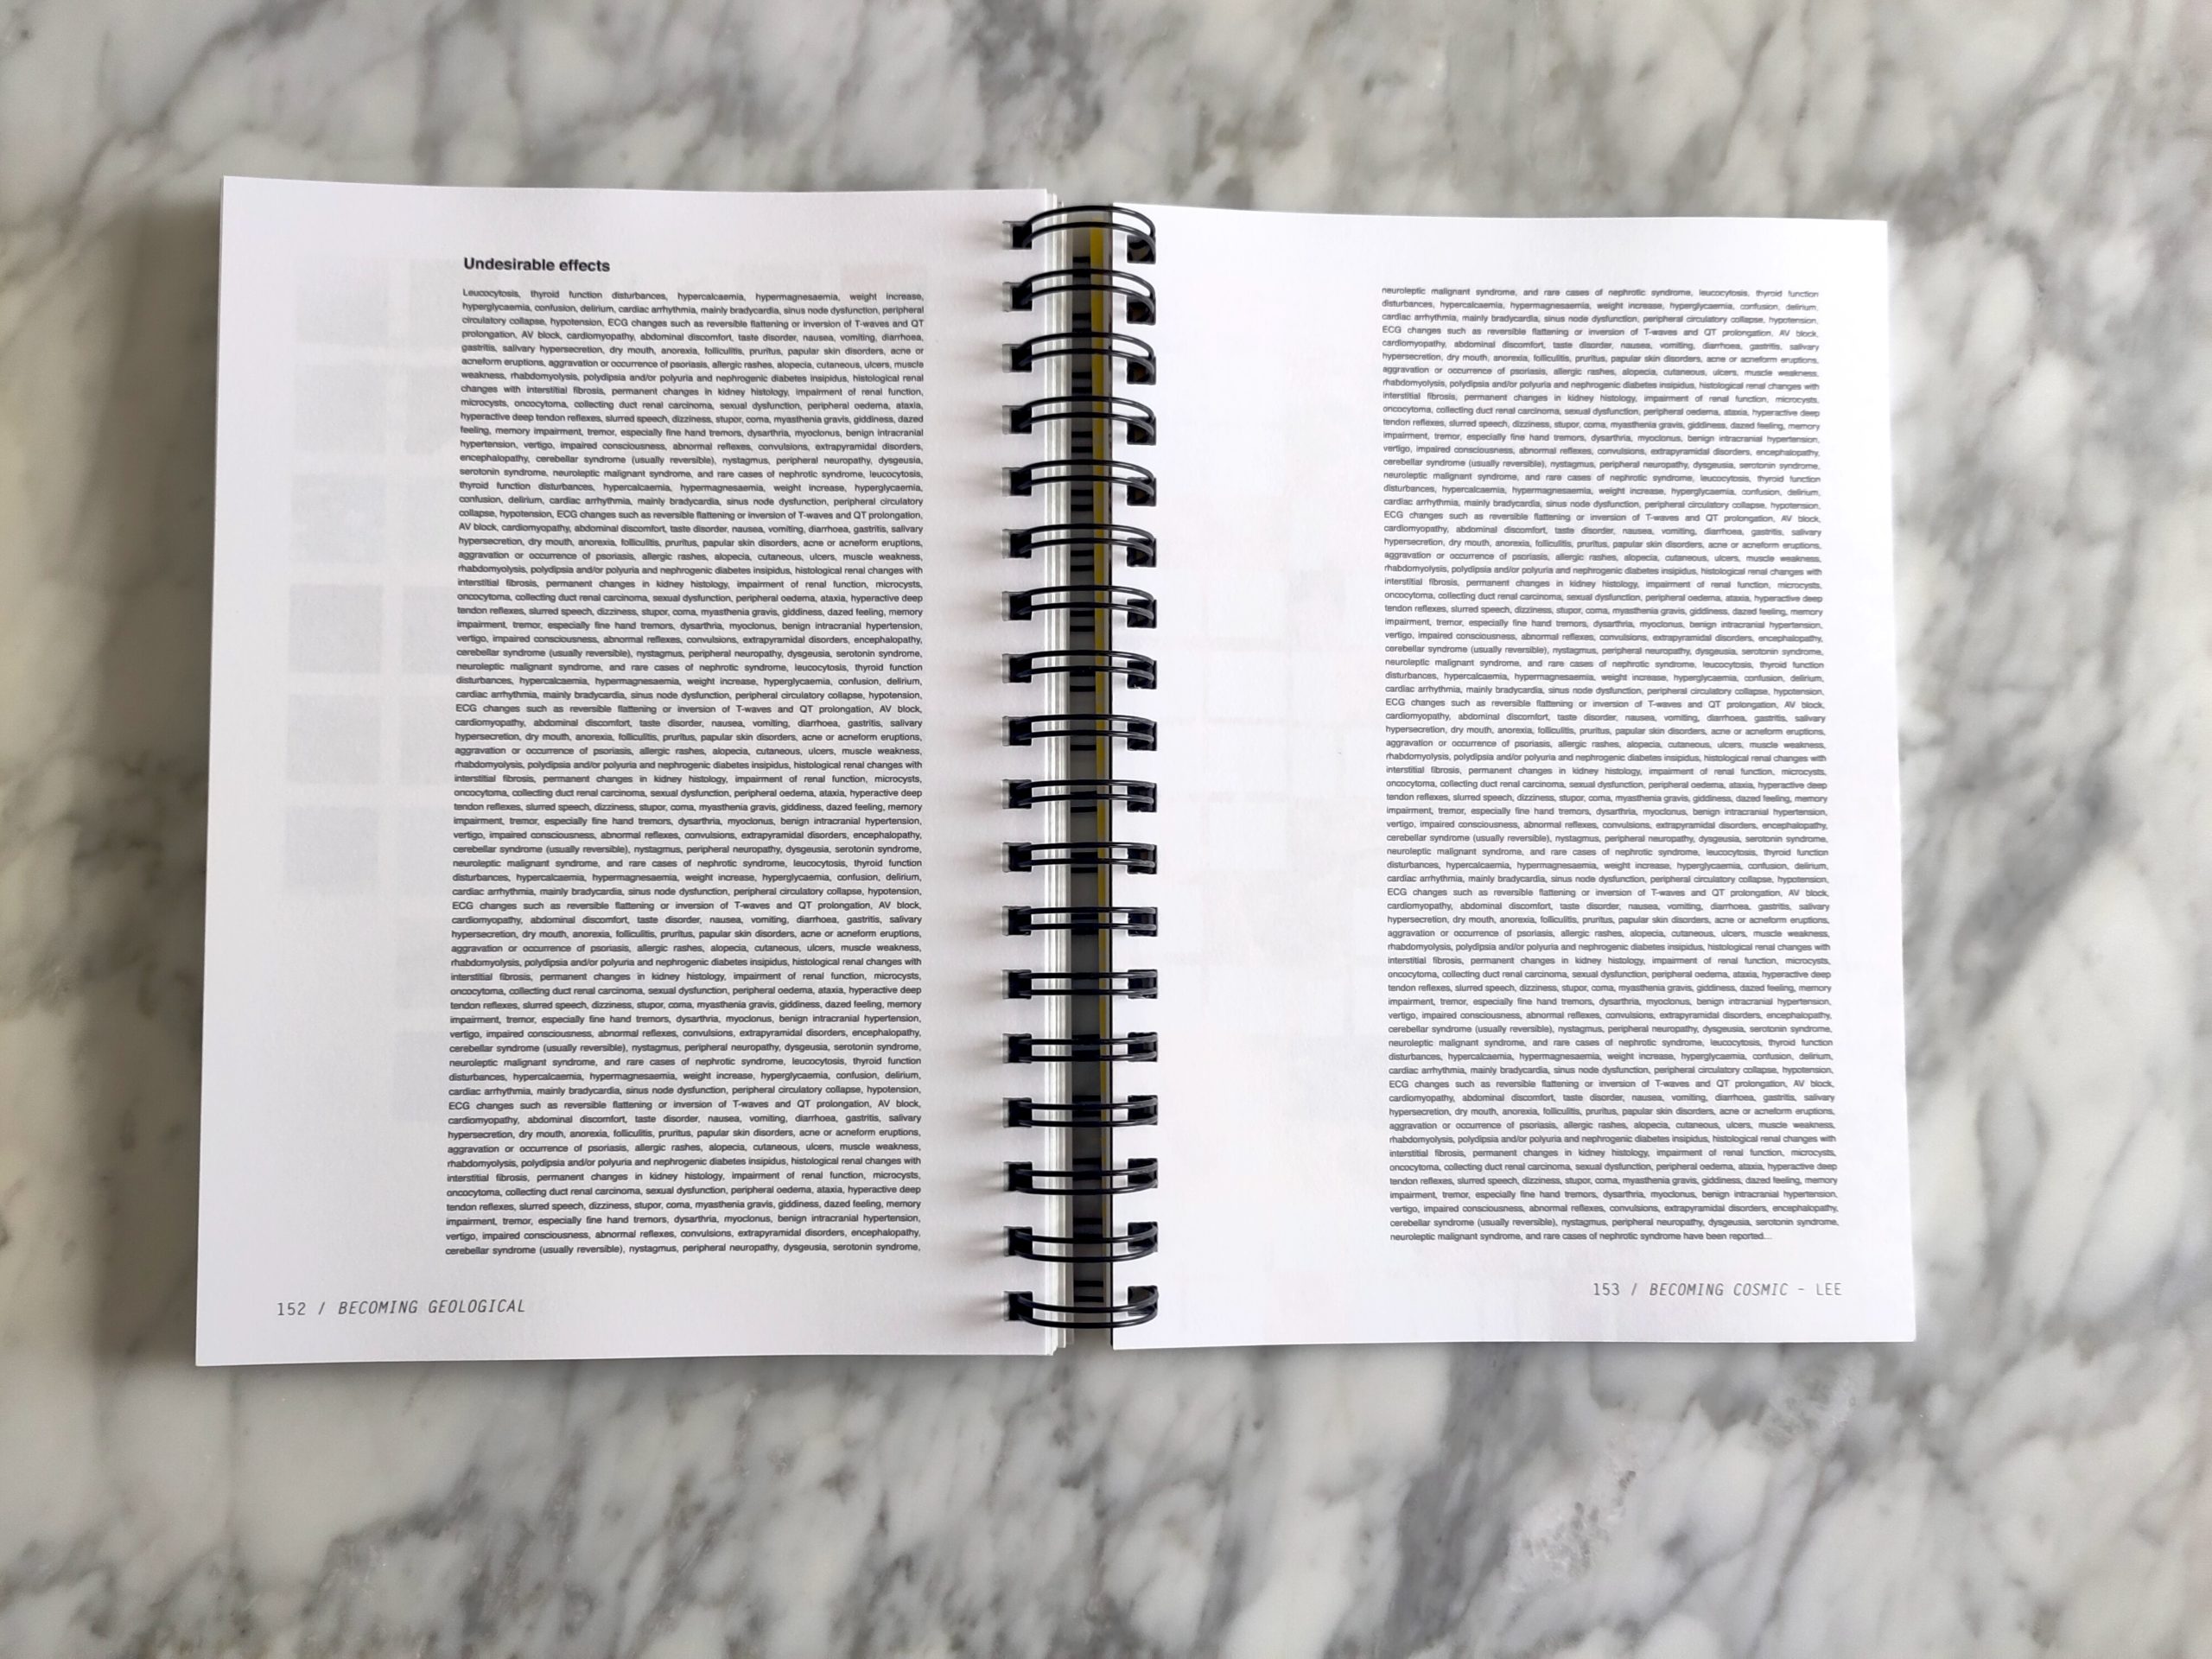 Undesirable effects
Leucocytosis, thyroid function disturbances, hypercalcaemia, hypermagnesaemia, weight increase,
hyperglycaemia, confusion, delirium, cardiac arrhythmia, mainly bradycardia, sinus node dysfunction, peripheral
circulatory collapse, hypotension, ECG changes such as reversible flattening or inversion of T-waves and QT
prolongation, AV block, cardiomyopathy, abdominal discomfort, taste disorder, nausea, vomiting, diarrhoea,
gastritis, salivary hypersecretion, dry mouth, anorexia, folliculitis, pruritus, papular skin disorders, acne or
acneform eruptions, aggravation or occurrence of psoriasis, allergic rashes, alopecia, cutaneous, ulcers, muscle
weakness, rhabdomyolysis, polydipsia and/or polyuria and nephrogenic diabetes insipidus, histological renal
changes with interstitial fibrosis, permanent changes in kidney histology, impairment of renal function,
microcysts, oncocytoma, collecting duct renal carcinoma, sexual dysfunction, peripheral oedema, ataxia,
hyperactive deep tendon reflexes, slurred speech, dizziness, stupor, coma, myasthenia gravis, giddiness, dazed
feeling, memory impairment, tremor, especially fine hand tremors, dysarthria, myoclonus, benign intracranial
hypertension, vertigo, impaired consciousness, abnormal reflexes, convulsions, extrapyramidal disorders,
encephalopathy, cerebellar syndrome (usually reversible), nystagmus, peripheral neuropathy, dysgeusia,
serotonin syndrome, neuroleptic malignant syndrome, and rare cases of nephrotic syndrome, leucocytosis,
thyroid function disturbances, hypercalcaemia, hypermagnesaemia, weight increase, hyperglycaemia,
confusion, delirium, cardiac arrhythmia, mainly bradycardia, sinus node dysfunction, peripheral circulatory
collapse, hypotension, ECG changes such as reversible flattening or inversion of T-waves and QT prolongation,
AV block, cardiomyopathy, abdominal discomfort, taste disorder, nausea, vomiting, diarrhoea, gastritis, salivary
hypersecretion, dry mouth, anorexia, folliculitis, pruritus, papular skin disorders, acne or acneform eruptions,
aggravation or occurrence of psoriasis, allergic rashes, alopecia, cutaneous, ulcers, muscle weakness,
rhabdomyolysis, polydipsia and/or polyuria and nephrogenic diabetes insipidus, histological renal changes with
interstitial fibrosis, permanent changes in kidney histology, impairment of renal function, microcysts,
oncocytoma, collecting duct renal carcinoma, sexual dysfunction, peripheral oedema, ataxia, hyperactive deep
tendon reflexes, slurred speech, dizziness, stupor, coma, myasthenia gravis, giddiness, dazed feeling, memory
impairment, tremor, especially fine hand tremors, dysarthria, myoclonus, benign intracranial hypertension,
vertigo, impaired consciousness, abnormal reflexes, convulsions, extrapyramidal disorders, encephalopathy,
cerebellar syndrome (usually reversible), nystagmus, peripheral neuropathy, dysgeusia, serotonin syndrome,
neuroleptic malignant syndrome, and rare cases of nephrotic syndrome, leucocytosis, thyroid function
disturbances, hypercalcaemia, hypermagnesaemia, weight increase, hyperglycaemia, confusion, delirium,
cardiac arrhythmia, mainly bradycardia, sinus node dysfunction, peripheral circulatory collapse, hypotension,
ECG changes such as reversible flattening or inversion of T-waves and QT prolongation, AV block,
cardiomyopathy, abdominal discomfort, taste disorder, nausea, vomiting, diarrhoea, gastritis, salivary
hypersecretion, dry mouth, anorexia, folliculitis, pruritus, papular skin disorders, acne or acneform eruptions,
aggravation or occurrence of psoriasis, allergic rashes, alopecia, cutaneous, ulcers, muscle weakness,
rhabdomyolysis, polydipsia and/or polyuria and nephrogenic diabetes insipidus, histological renal changes with
interstitial fibrosis, permanent changes in kidney histology, impairment of renal function, microcysts,
oncocytoma, collecting duct renal carcinoma, sexual dysfunction, peripheral oedema, ataxia, hyperactive deep
tendon reflexes, slurred speech, dizziness, stupor, coma, myasthenia gravis, giddiness, dazed feeling, memory
impairment, tremor, especially fine hand tremors, dysarthria, myoclonus, benign intracranial hypertension,
vertigo, impaired consciousness, abnormal reflexes, convulsions, extrapyramidal disorders, encephalopathy,
cerebellar syndrome (usually reversible), nystagmus, peripheral neuropathy, dysgeusia, serotonin syndrome,
neuroleptic malignant syndrome, and rare cases of nephrotic syndrome, leucocytosis, thyroid function
disturbances, hypercalcaemia, hypermagnesaemia, weight increase, hyperglycaemia, confusion, delirium,
cardiac arrhythmia, mainly bradycardia, sinus node dysfunction, peripheral circulatory collapse, hypotension,
ECG changes such as reversible flattening or inversion of T-waves and QT prolongation, AV block,
cardiomyopathy, abdominal discomfort, taste disorder, nausea, vomiting, diarrhoea, gastritis, salivary
hypersecretion, dry mouth, anorexia, folliculitis, pruritus, papular skin disorders, acne or acneform eruptions,
aggravation or occurrence of psoriasis, allergic rashes, alopecia, cutaneous, ulcers, muscle weakness,
rhabdomyolysis, polydipsia and/or polyuria and nephrogenic diabetes insipidus, histological renal changes with
interstitial fibrosis, permanent changes in kidney histology, impairment of renal function, microcysts,
oncocytoma, collecting duct renal carcinoma, sexual dysfunction, peripheral oedema, ataxia, hyperactive deep
tendon reflexes, slurred speech, dizziness, stupor, coma, myasthenia gravis, giddiness, dazed feeling, memory
impairment, tremor, especially fine hand tremors, dysarthria, myoclonus, benign intracranial hypertension,
vertigo, impaired consciousness, abnormal reflexes, convulsions, extrapyramidal disorders, encephalopathy,
cerebellar syndrome (usually reversible), nystagmus, peripheral neuropathy, dysgeusia, serotonin syndrome,
neuroleptic malignant syndrome, and rare cases of nephrotic syndrome, leucocytosis, thyroid function
disturbances, hypercalcaemia, hypermagnesaemia, weight increase, hyperglycaemia, confusion, delirium,
cardiac arrhythmia, mainly bradycardia, sinus node dysfunction, peripheral circulatory collapse, hypotension,
ECG changes such as reversible flattening or inversion of T-waves and QT prolongation, AV block,
cardiomyopathy, abdominal discomfort, taste disorder, nausea, vomiting, diarrhoea, gastritis, salivary
hypersecretion, dry mouth, anorexia, folliculitis, pruritus, papular skin disorders, acne or acneform eruptions,
aggravation or occurrence of psoriasis, allergic rashes, alopecia, cutaneous, ulcers, muscle weakness,
rhabdomyolysis, polydipsia and/or polyuria and nephrogenic diabetes insipidus, histological renal changes with
interstitial fibrosis, permanent changes in kidney histology, impairment of renal function, microcysts,
oncocytoma, collecting duct renal carcinoma, sexual dysfunction, peripheral oedema, ataxia, hyperactive deep
tendon reflexes, slurred speech, dizziness, stupor, coma, myasthenia gravis, giddiness, dazed feeling, memory
impairment, tremor, especially fine hand tremors, dysarthria, myoclonus, benign intracranial hypertension,
vertigo, impaired consciousness, abnormal reflexes, convulsions, extrapyramidal disorders, encephalopathy,
cerebellar syndrome (usually reversible), nystagmus, peripheral neuropathy, dysgeusia, serotonin syndrome,
152 / BECOMING GEOLOGICAL
neuroleptic malignant syndrome, and rare cases of nephrotic syndrome, leucocytosis, thyroid function
disturbances, hypercalcaemia, hypermagnesaemia, weight increase, hyperglycaemia, confusion, delirium,
cardiac arrhythmia, mainly bradycardia, sinus node dysfunction, peripheral circulatory collapse, hypotension,
ECG changes such as reversible flattening or inversion of T-waves and QT prolongation, AV block,
cardiomyopathy, abdominal discomfort, taste disorder, nausea, vomiting, diarrhoea, gastritis, salivary
hypersecretion, dry mouth, anorexia, folliculitis, pruritus, papular skin disorders, acne or acneform eruptions,
aggravation or occurrence of psoriasis, allergic rashes, alopecia, cutaneous, ulcers, muscle weakness,
rhabdomyolysis, polydipsia and/or polyuria and nephrogenic diabetes insipidus, histological renal changes with
interstitial fibrosis, permanent changes in kidney histology, impairment of renal function, microcysts,
oncocytoma, collecting duct renal carcinoma, sexual dysfunction, peripheral oedema, ataxia, hyperactive deep
tendon reflexes, slurred speech, dizziness, stupor, coma, myasthenia gravis, giddiness, dazed feeling, memory
impairment, tremor, especially fine hand tremors, dysarthria, myoclonus, benign intracranial hypertension,
vertigo, impaired consciousness, abnormal reflexes, convulsions, extrapyramidal disorders, encephalopathy,
cerebellar syndrome (usually reversible), nystagmus, peripheral neuropathy, dysgeusia, serotonin syndrome,
neuroleptic malignant syndrome, and rare cases of nephrotic syndrome, leucocytosis, thyroid function
disturbances, hypercalcaemia, hypermagnesaemia, weight increase, hyperglycaemia, confusion, delirium,
cardiac arrhythmia, mainly bradycardia, sinus node dysfunction, peripheral circulatory collapse, hypotension,
ECG changes such as reversible flattening or inversion of T-waves and QT prolongation, AV block,
cardiomyopathy, abdominal discomfort, taste disorder, nausea, vomiting, diarrhoea, gastritis, salivary
hypersecretion, dry mouth, anorexia, folliculitis, pruritus, papular skin disorders, acne or acneform eruptions,
aggravation or occurrence of psoriasis, allergic rashes, alopecia, cutaneous, ulcers, muscle weakness,
rhabdomyolysis, polydipsia and/or polyuria and nephrogenic diabetes insipidus, histological renal changes with
interstitial fibrosis, permanent changes in kidney histology, impairment of renal function, microcysts,
oncocytoma, collecting duct renal carcinoma, sexual dysfunction, peripheral oedema, ataxia, hyperactive deep
tendon reflexes, slurred speech, dizziness, stupor, coma, myasthenia gravis, giddiness, dazed feeling, memory
impairment, tremor, especially fine hand tremors, dysarthria, myoclonus, benign intracranial hypertension,
vertigo, impaired consciousness, abnormal reflexes, convulsions, extrapyramidal disorders, encephalopathy,
cerebellar syndrome (usually reversible), nystagmus, peripheral neuropathy, dysgeusia, serotonin syndrome,
neuroleptic malignant syndrome, and rare cases of nephrotic syndrome, leucocytosis, thyroid function
disturbances, hypercalcaemia, hypermagnesaemia, weight increase, hyperglycaemia, confusion, delirium,
cardiac arrhythmia, mainly bradycardia, sinus node dysfunction, peripheral circulatory collapse, hypotension,
ECG changes such as reversible flattening or inversion of T-waves and QT prolongation, AV block,
cardiomyopathy, abdominal discomfort, taste disorder, nausea, vomiting, diarrhoea, gastritis, salivary
hypersecretion, dry mouth, anorexia, folliculitis, pruritus, papular skin disorders, acne or acneform eruptions,
aggravation or occurrence of psoriasis, allergic rashes, alopecia, cutaneous, ulcers, muscle weakness,
rhabdomyolysis, polydipsia and/or polyuria and nephrogenic diabetes insipidus, histological renal changes with
interstitial fibrosis, permanent changes in kidney histology, impairment of renal function, microcysts,
oncocytoma, collecting duct renal carcinoma, sexual dysfunction, peripheral oedema, ataxia, hyperactive deep
tendon reflexes, slurred speech, dizziness, stupor, coma, myasthenia gravis, giddiness, dazed feeling, memory
impairment, tremor, especially fine hand tremors, dysarthria, myoclonus, benign intracranial hypertension,
vertigo, impaired consciousness, abnormal reflexes, convulsions, extrapyramidal disorders, encephalopathy,
cerebellar syndrome (usually reversible), nystagmus, peripheral neuropathy, dysgeusia, serotonin syndrome,
neuroleptic malignant syndrome, and rare cases of nephrotic syndrome, leucocytosis, thyroid function
disturbances, hypercalcaemia, hypermagnesaemia, weight increase, hyperglycaemia, confusion, delirium,
cardiac arrhythmia, mainly bradycardia, sinus node dysfunction, peripheral circulatory collapse, hypotension,
ECG changes such as reversible flattening or inversion of T-waves and QT prolongation, AV block,
cardiomyopathy, abdominal discomfort, taste disorder, nausea, vomiting, diarrhoea, gastritis, salivary
hypersecretion, dry mouth, anorexia, folliculitis, pruritus, papular skin disorders, acne or acneform eruptions,
aggravation or occurrence of psoriasis, allergic rashes, alopecia, cutaneous, ulcers, muscle weakness,
rhabdomyolysis, polydipsia and/or polyuria and nephrogenic diabetes insipidus, histological renal changes with
interstitial fibrosis, permanent changes in kidney histology, impairment of renal function, microcysts,
oncocytoma, collecting duct renal carcinoma, sexual dysfunction, peripheral oedema, ataxia, hyperactive deep
tendon reflexes, slurred speech, dizziness, stupor, coma, myasthenia gravis, giddiness, dazed feeling, memory
impairment, tremor, especially fine hand tremors, dysarthria, myoclonus, benign intracranial hypertension,
vertigo, impaired consciousness, abnormal reflexes, convulsions, extrapyramidal disorders, encephalopathy,
cerebellar syndrome (usually reversible), nystagmus, peripheral neuropathy, dysgeusia, serotonin syndrome,
neuroleptic malignant syndrome, and rare cases of nephrotic syndrome, leucocytosis, thyroid function
disturbances, hypercalcaemia, hypermagnesaemia, weight increase, hyperglycaemia, confusion, delirium,
cardiac arrhythmia, mainly bradycardia, sinus node dysfunction, peripheral circulatory collapse, hypotension,
ECG changes such as reversible flattening or inversion of T-waves and QT prolongation, AV block,
cardiomyopathy, abdominal discomfort, taste disorder, nausea, vomiting, diarrhoea, gastritis, salivary
hypersecretion, dry mouth, anorexia, folliculitis, pruritus, papular skin disorders, acne or acneform eruptions,
aggravation or occurrence of psoriasis, allergic rashes, alopecia, cutaneous, ulcers, muscle weakness,
rhabdomyolysis, polydipsia and/or polyuria and nephrogenic diabetes insipidus, histological renal changes with
interstitial fibrosis, permanent changes in kidney histology, impairment of renal function, microcysts,
oncocytoma, collecting duct renal carcinoma, sexual dysfunction, peripheral oedema, ataxia, hyperactive deep
tendon reflexes, slurred speech, dizziness, stupor, coma, myasthenia gravis, giddiness, dazed feeling, memory
impairment, tremor, especially fine hand tremors, dysarthria, myoclonus, benign intracranial hypertension,
vertigo, impaired consciousness, abnormal reflexes, convulsions, extrapyramidal disorders, encephalopathy,
cerebellar syndrome (usually reversible), nystagmus, peripheral neuropathy, dysgeusia, serotonin syndrome,
neuroleptic malignant syndrome, and rare cases of nephrotic syndrome have been reported...
153 / BECOMING COSMIC – LEE